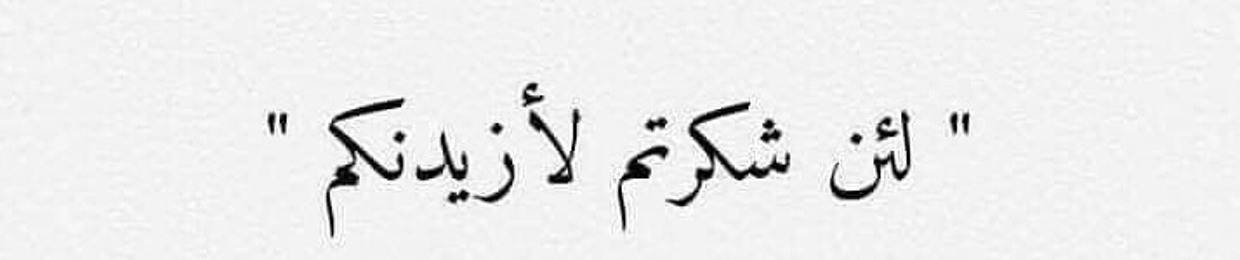 " لئن شكرتم لأزيدنكم "